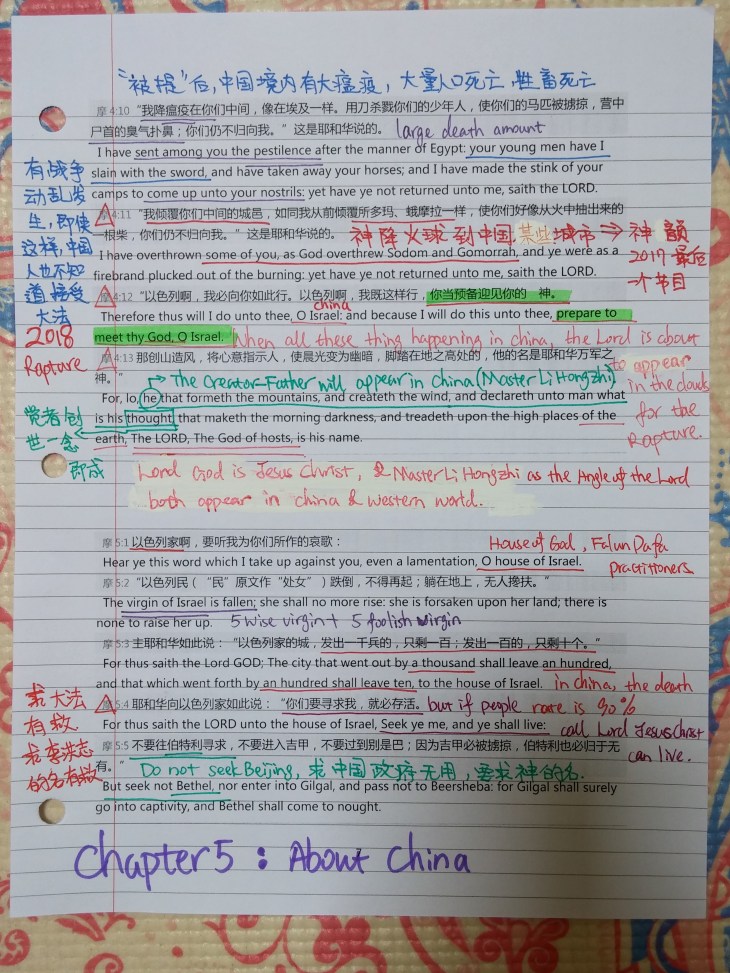 “被提”后,中国境内有大瘟疫,大量人口死亡,牲畜死亡
摩 4:10 “我降瘟疫在你们中间，像在埃及一样。用刀杀戮你们的少年人，使你们的马匹被掳掠，营中
尸首的臭气扑鼻；你们仍不归向我。”这是耶和华说的。 large death amount
I have sent among you the pestilence after the manner of Egypt: your young men have I
slain with the sword, and have taken away your horses; and I have made the stink of your
camps to come up unto your nostrils: yet have ye not returned unto me, saith the LORD.
有战争
动乱发
生,即使
这样,中国
人也不知
道接受
大法
2018
Rapture
摩 4:11 “我倾覆你们中间的城邑，如同我从前倾覆所多玛、蛾摩拉一样，使你们好像从火中抽出来的
一根柴，你们仍不归向我。”这是耶和华说的。 神降火球到中国某些城市 ⇒ 神韵
2017最后
一个节目
I have overthrown some of you, as God overthrew Sodom and Gomorrah, and ye were as a
firebrand plucked out of the burning: yet have ye not returned unto me, saith the LORD.
摩 4:12 “以色列啊，我必向你如此行。以色列啊，我既这样行，你当预备迎见你的 神。
china
Therefore thus will I do unto thee, O Israel: and because I will do this unto thee, prepare to
meet thy God, O Israel. When all these thing happening in china, the Lord is about
to appear
in the clouds
for the
Rapture.
摩 4:13 那创山造风，将心意指示人，使晨光变为幽暗，脚踏在地之高处的，他的名是耶和华万军之
神。”
The Creator-Father will appear in China (Master Li Hongzhi)
For, lo, he that formeth the mountains, and createth the wind, and declareth unto man what
is his thought, that maketh the morning darkness, and treadeth upon the high places of the
earth, The LORD, The God of hosts, is his name.
觉者创
世一念
即成
Lord God is Jesus Christ, & Master Li Hongzhi as the Angle of the Lord
both appear in china & western world.
摩 5:1 以色列家啊，要听我为你们所作的哀歌：
House of God, Falun Dafa
practitioners
Hear ye this word which I take up against you, even a lamentation, O house of Israel.
摩 5:2 “以色列民（“民”原文作“处女”）跌倒，不得再起；躺在地上，无人搀扶。”
The virgin of Israel is fallen; she shall no more rise: she is forsaken upon her land; there is
none to raise her up. 5 wise virgin + 5 foolish virgin
摩 5:3 主耶和华如此说：“以色列家的城，发出一千兵的，只剩一百；发出一百的，只剩十个。”
For thus saith the Lord GOD; The city that went out by a thousand shall leave an hundred,
and that which went forth by an hundred shall leave ten, to the house of Israel. in china, the death
rate is 90%
摩 5:4 耶和华向以色列家如此说：“你们要寻求我，就必存活。 but if people
For thus saith the LORD unto the house of Israel, Seek ye me, and ye shall live: call Lord Jesus Christ
can live.
求大法
有救
求李洪志
的名有救
摩 5:5 不要往伯特利寻求，不要进入吉甲，不要过到别是巴；因为吉甲必被掳掠，伯特利也必归于无
有。” Do not seek Beijing, 求中国政府无用,要求神的名.
But seek not Bethel, nor enter into Gilgal, and pass not to Beersheba: for Gilgal shall surely
go into captivity, and Bethel shall come to nought.
Chapter 5 : About China